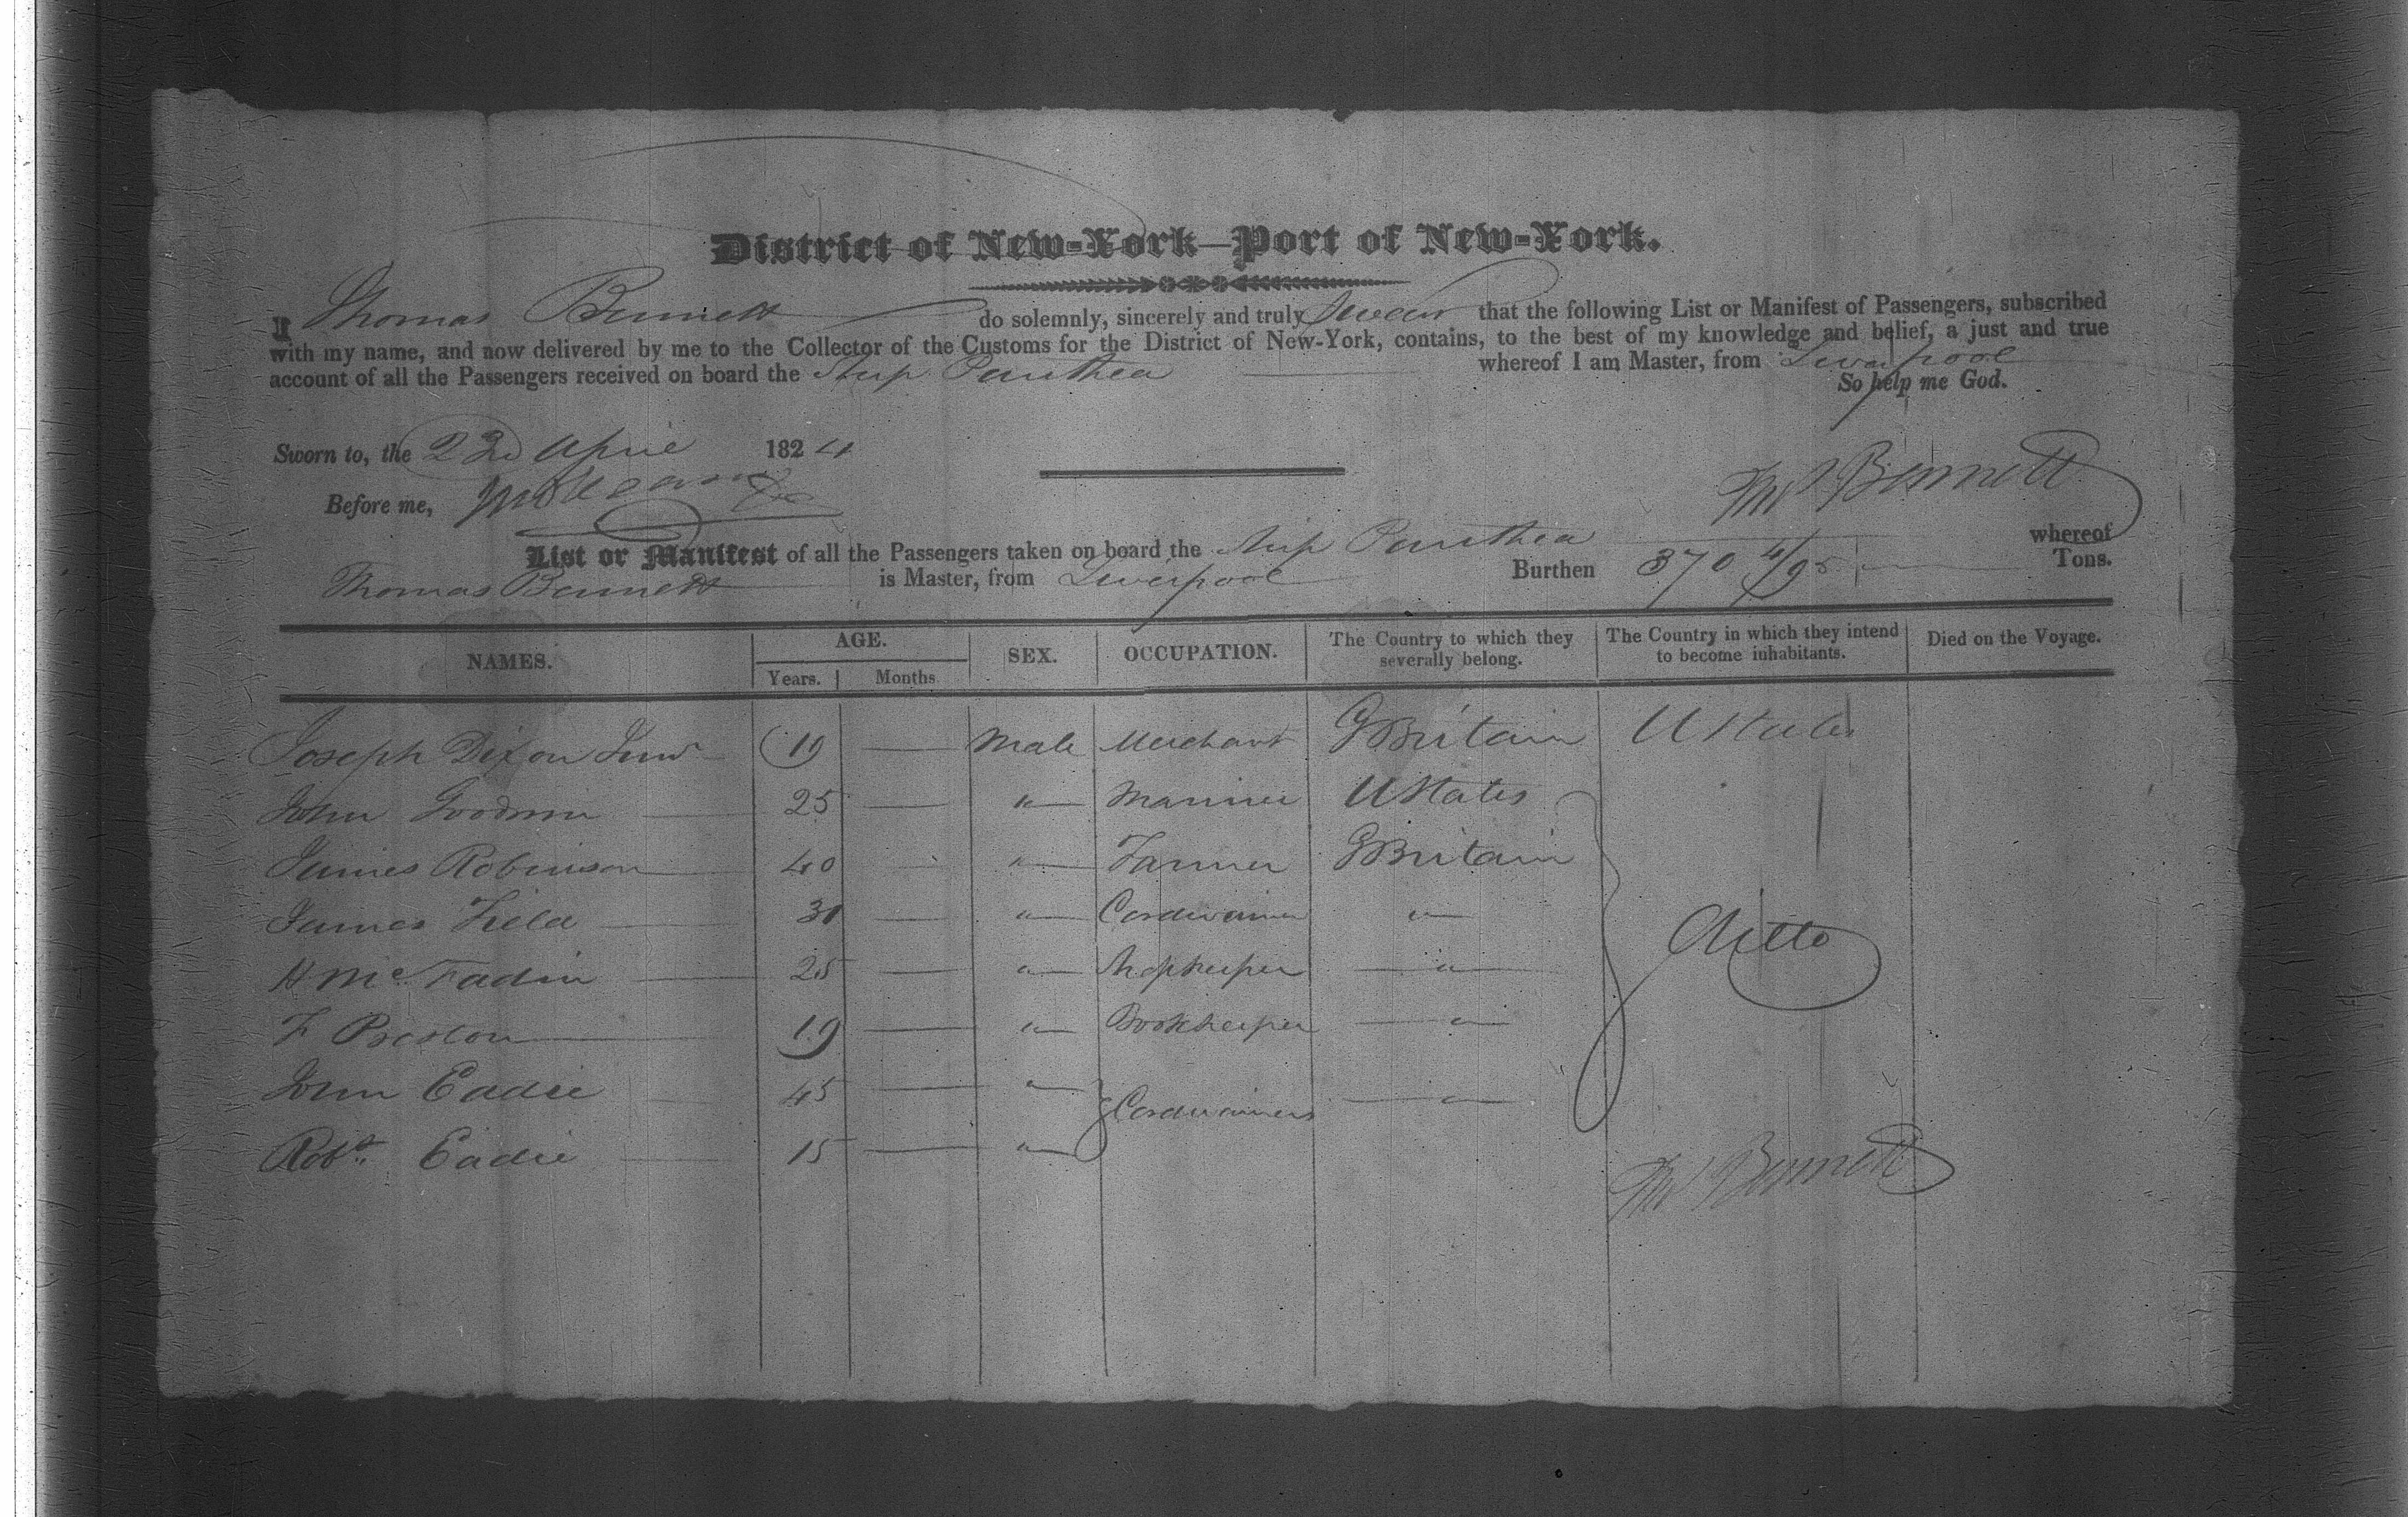 District of New-York—Port of New-York.
I Thomas Bennett do solemnly, sincerely and truly Swear that the following List or Manifest of Passengers, subscribed
with my name, and now delivered by me to the Collector of the Customs for the District of New-York, contains, to the best of my knowledge and belief, a just and true
account of all the Passengers received on board the Ship Panthea whereof I am Master, from Liverpool
So help me God.
Sworn to, the 22d April 1824
Before me,
Thos Bennett
List or Manifest of all the Passengers taken on board the Ship Panthea whereof
Thomas Bennett is Master, from Liverpool Burthen 370 4/95 Tons.
NAMES. AGE. Years. Months SEX. OCCUPATION. The Country to which they severally belong. The Country in which they intend to become inhabitants. Died on the Voyage.
Joseph Dixon Junr 19 — Male Merchant G Britain U States
John Goodwin 25 — " Mariner U States
James Robinson 40 " Farmer G Britain
James Field 30 — " Cordwainer "
H McFadin 25 — " Shopkeeper "
F Preston 19 — " Bookkeeper "
John Eadie 45 — " Cordwainers "
Robt. Eadie 15 — "
Ditto
Thos Bennett